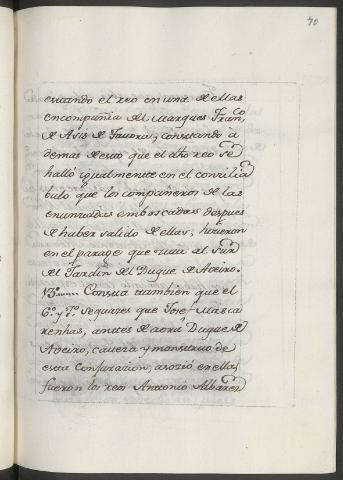 70
estando el reo en una de ellas
en compañia del Marques Fran.co
de Asis de Tavora; constando à
demas de esto que el dho reo se
halló igualmente en el concilia
bulo que los compañeros de las
enunciadas emboscadas despues
de haber salido de ellas, tuvieron
en el parage que cita al Sur
del Jardin del Duque de Aveiro.
13.º Consta tambien que el
6.º y 7.º Seguaces que Josef Masca
renhas, antes de aora Duque de
Aveiro, cabeza y monstruo de
esta Conjuracion, asoció en ellas
fueron los reos Antonio Albarez